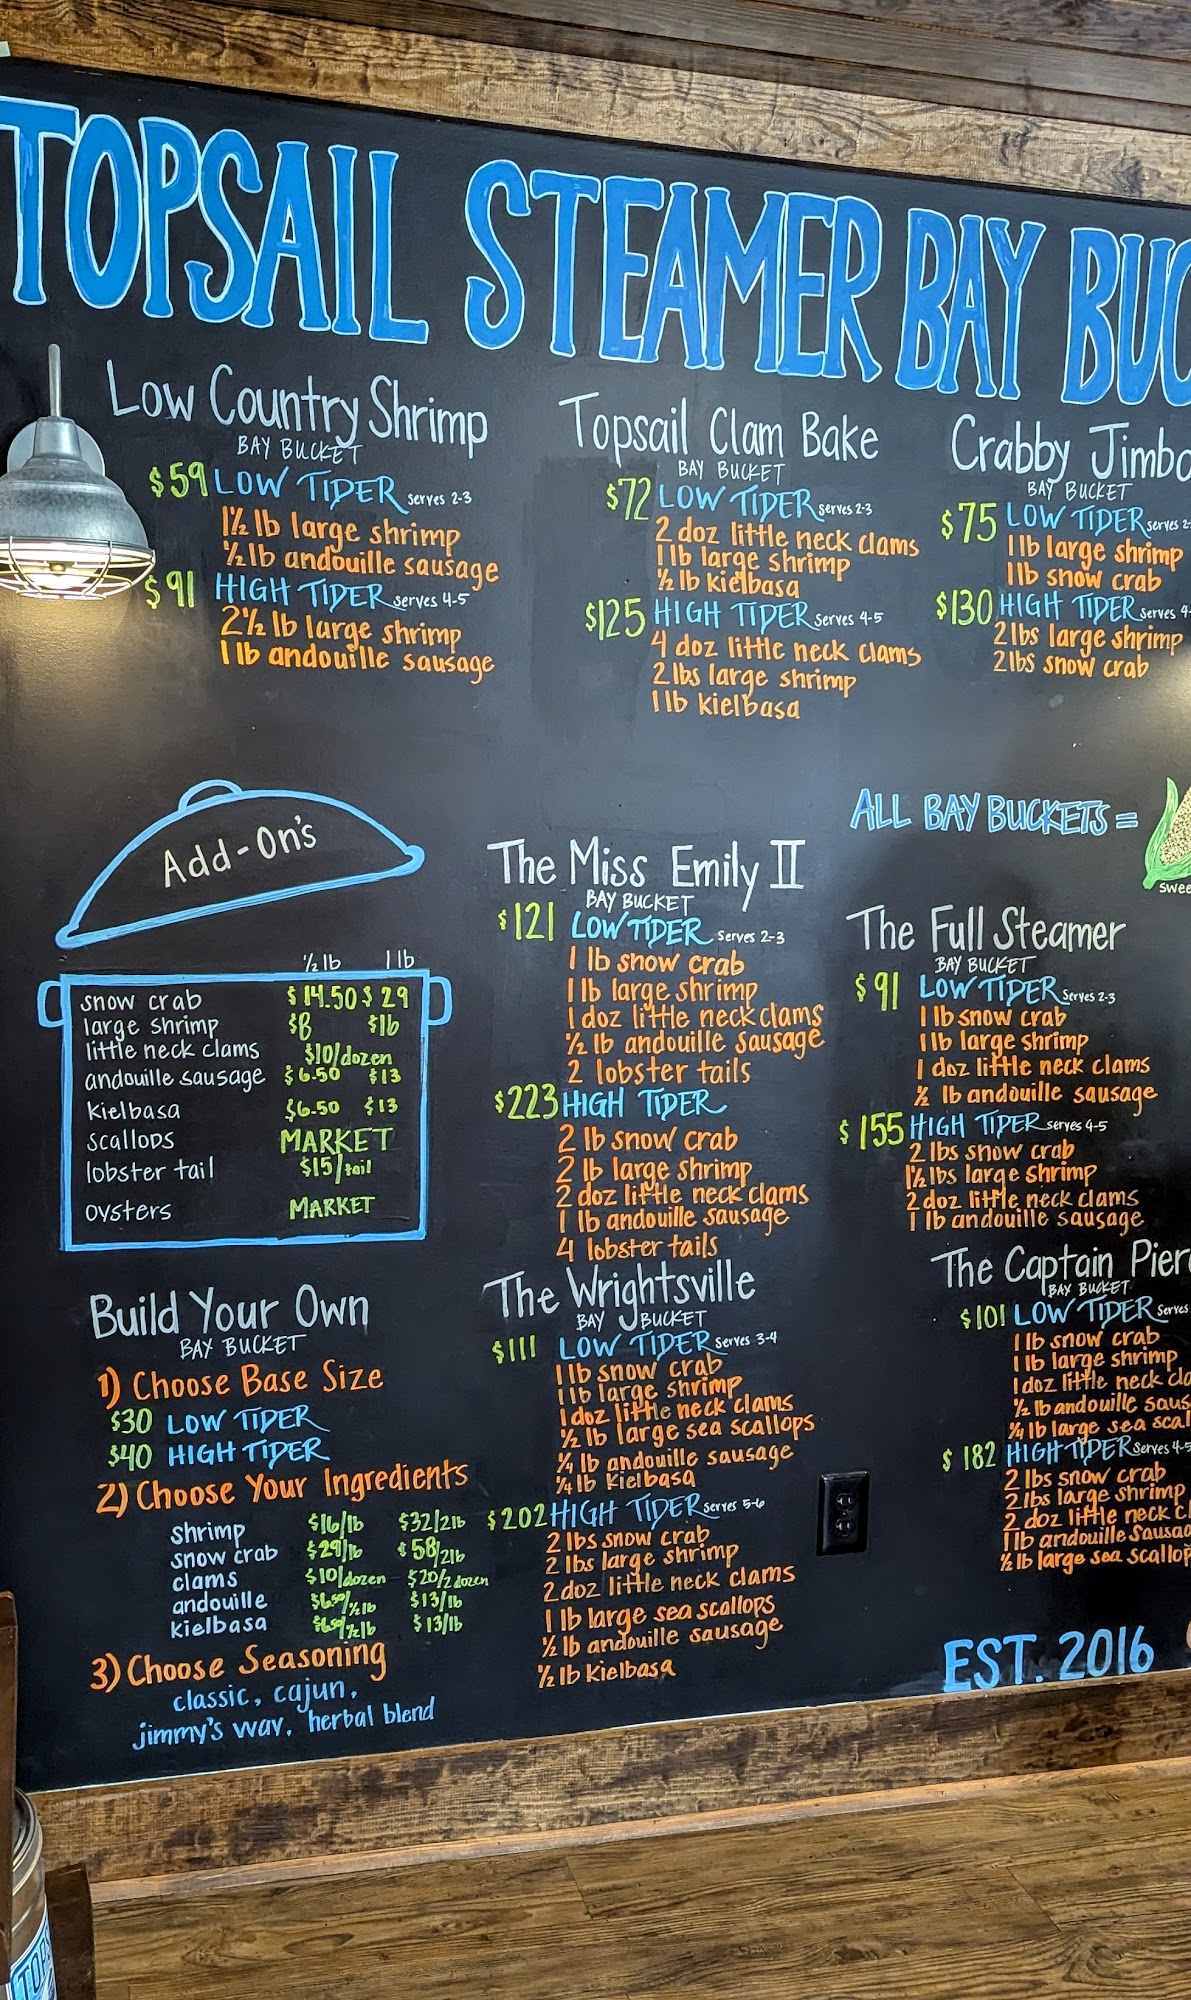 TOPSAIL STEAMER BAY BUC
Low Country Shrimp
BAY BUCKET
$59 LOW TIDER serves 2-3
1½ lb large shrimp
½ lb andouille sausage
$91 HIGH TIDER serves 4-5
2½ lb large shrimp
1 lb andouille sausage
Topsail Clam Bake
BAY BUCKET
$72 LOW TIDER serves 2-3
2 doz little neck clams
1 lb large shrimp
½ lb kielbasa
$125 HIGH TIDER serves 4-5
4 doz little neck clams
2 lbs large shrimp
1 lb kielbasa
Crabby Jimbo
BAY BUCKET
$75 LOW TIDER serves 2-
1 lb large shrimp
1 lb snow crab
$130 HIGH TIDER serves 4-
2 lbs large shrimp
2 lbs snow crab
ALL BAY BUCKETS =
swee
Add-On's
½ lb 1 lb
snow crab $14.50 $29
large shrimp $8 $16
little neck clams $10/dozen
andouille sausage $6.50 $13
kielbasa $6.50 $13
scallops MARKET
lobster tail $15/tail
oysters MARKET
The Miss Emily II
BAY BUCKET
$121 LOW TIDER serves 2-3
1 lb snow crab
1 lb large shrimp
1 doz little neck clams
½ lb andouille sausage
2 lobster tails
$223 HIGH TIDER
2 lb snow crab
2 lb large shrimp
2 doz little neck clams
1 lb andouille sausage
4 lobster tails
The Full Steamer
BAY BUCKET
$91 LOW TIDER serves 2-3
1 lb snow crab
1 lb large shrimp
1 doz little neck clams
½ lb andouille sausage
$155 HIGH TIDER serves 4-5
2 lbs snow crab
1½ lbs large shrimp
2 doz little neck clams
1 lb andouille sausage
Build Your Own
BAY BUCKET
1) Choose Base Size
$30 LOW TIDER
$40 HIGH TIDER
2) Choose Your Ingredients
shrimp $16/lb $32/2lb
snow crab $29/lb $58/2lb
clams $10/dozen $20/2 dozen
andouille $6.50/½lb $13/lb
kielbasa $6.50/½lb $13/lb
3) Choose Seasoning
classic, cajun,
jimmy's way, herbal blend
The Wrightsville
BAY BUCKET
$111 LOW TIDER serves 3-4
1 lb snow crab
1 lb large shrimp
1 doz little neck clams
½ lb large sea scallops
¼ lb andouille sausage
¼ lb kielbasa
$202 HIGH TIDER serves 5-6
2 lbs snow crab
2 lbs large shrimp
2 doz little neck clams
1 lb large sea scallops
½ lb andouille sausage
½ lb kielbasa
The Captain Pier
BAY BUCKET
$101 LOW TIDER serves
1 lb snow crab
1 lb large shrimp
1 doz little neck cla
½ lb andouille saus
¼ lb large sea scal
$182 HIGH TIDER serves 4-5
2 lbs snow crab
2 lbs large shrimp
2 doz little neck cl
1 lb andouille sausag
½ lb large sea scallop
EST. 2016
TOPS